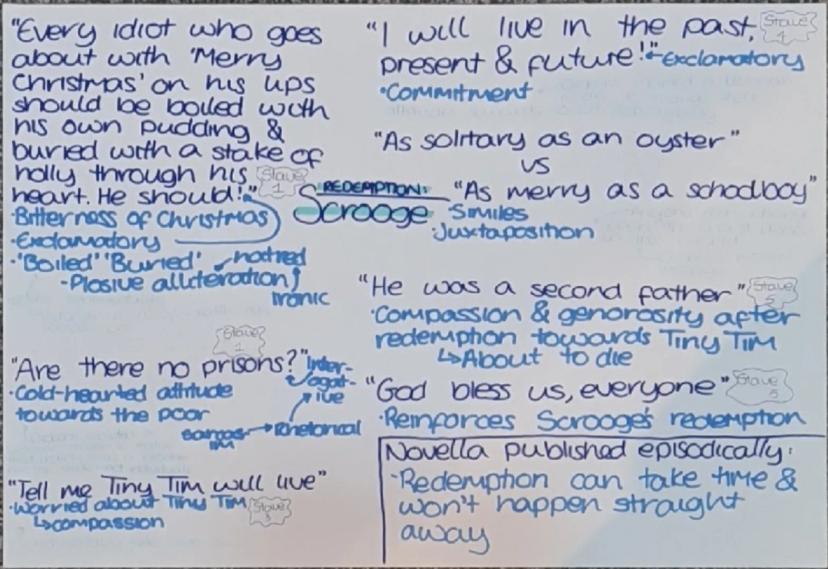 "Every idiot who goes
about with 'Merry
Christmas' on his lips
should be boiled with
his own pudding &
buried with a stake of
holly through his
heart. He should!"
Stave
1
·Bitterness of Christmas
·Exclamatory
·'Boiled' 'Buried'
hatred
-Plosive alliteration
ironic
"Are there no prisons?"
Stave
1
Inter-
ogat-
ive
·Cold-hearted attitude
towards the poor
sarcas-
tim
Rhetorical
"Tell me Tiny Tim will live"
·Worried about Tiny Tim
Stave
3
↳compassion
REDEMPTION:
Scrooge
"I will live in the past,
present & future!"
Stave
4
Exclamatory
·Commitment
"As solitary as an oyster"
vs
"As merry as a schoolboy"
·Similes
·Juxtaposition
"He was a second father"
Stave
5
·Compassion & generosity after
redemption towards Tiny Tim
↳About to die
"God bless us, everyone"
Stave
5
·Reinforces Scrooge's redemption
Novella published episodically:
·Redemption can take time &
won't happen straight
away